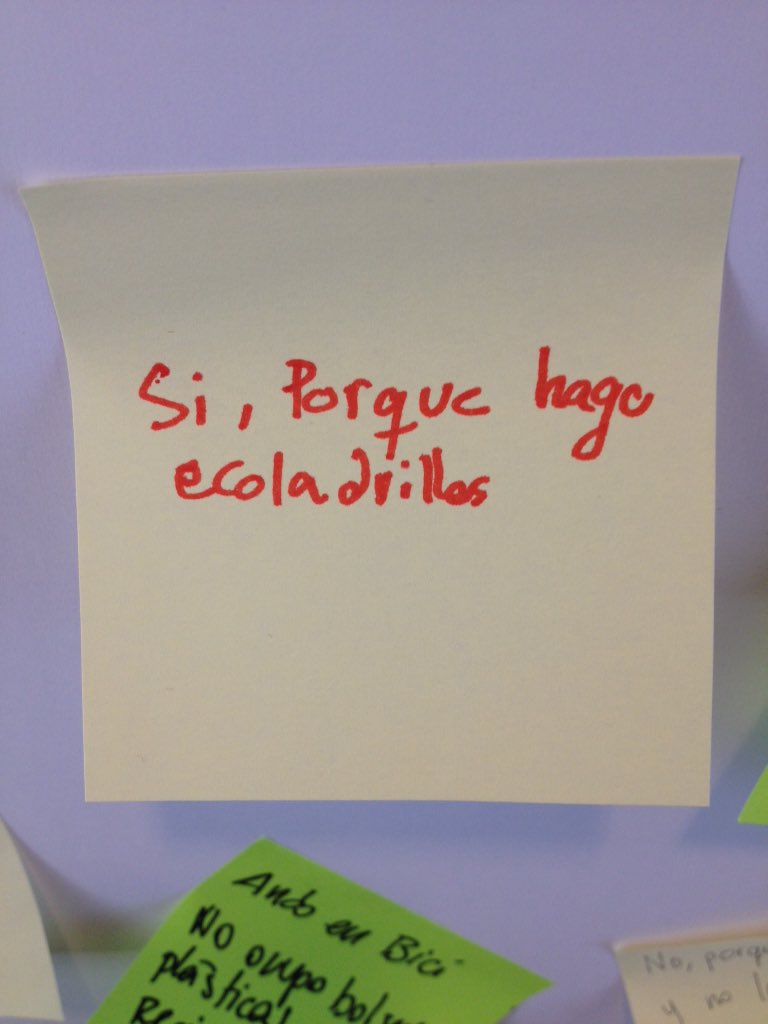 Si, Porque hago
ecoladrillos
Ando en Bici
No ocupo
plástica
No,
y no